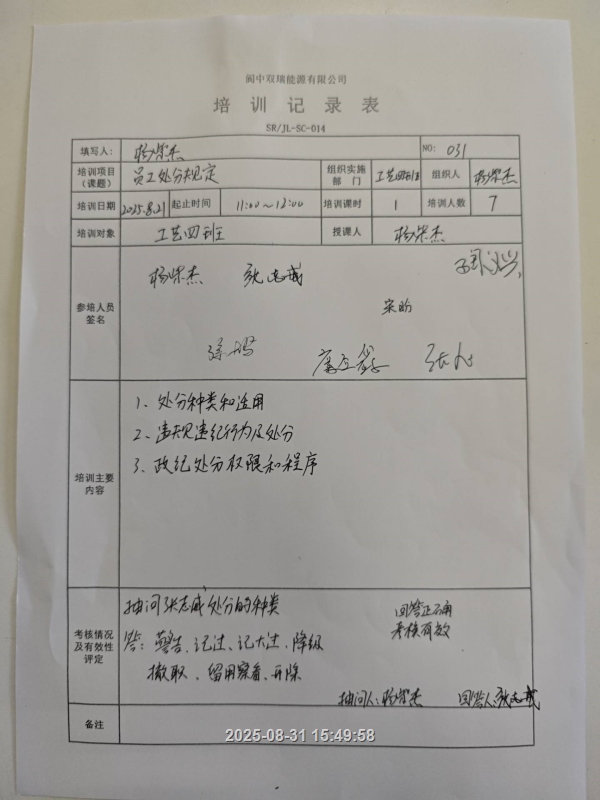 阆中双瑞能源有限公司
培训记录表
SR/JL-SC-014
填写人: 杨荣杰 NO: 031
培训项目(课题) 员工处分规定 组织实施部门 工艺四班 组织人 杨荣杰
培训日期 2025.8.21 起止时间 11:00~12:00 培训课时 1 培训人数 7
培训对象 工艺四班 授课人 杨荣杰
参培人员签名
杨荣杰 张志威
宋盼
培训主要内容
1、处分种类和适用
2、违规违纪行为及处分
3、政纪处分权限和程序
考核情况及有效性评定
抽问张志威处分的种类 回答正确
考核有效
答：警告、记过、记大过、降级
撤职、留用察看、开除
抽问人：杨荣杰 回答人：张志威
备注
2025-08-31 15:49:58